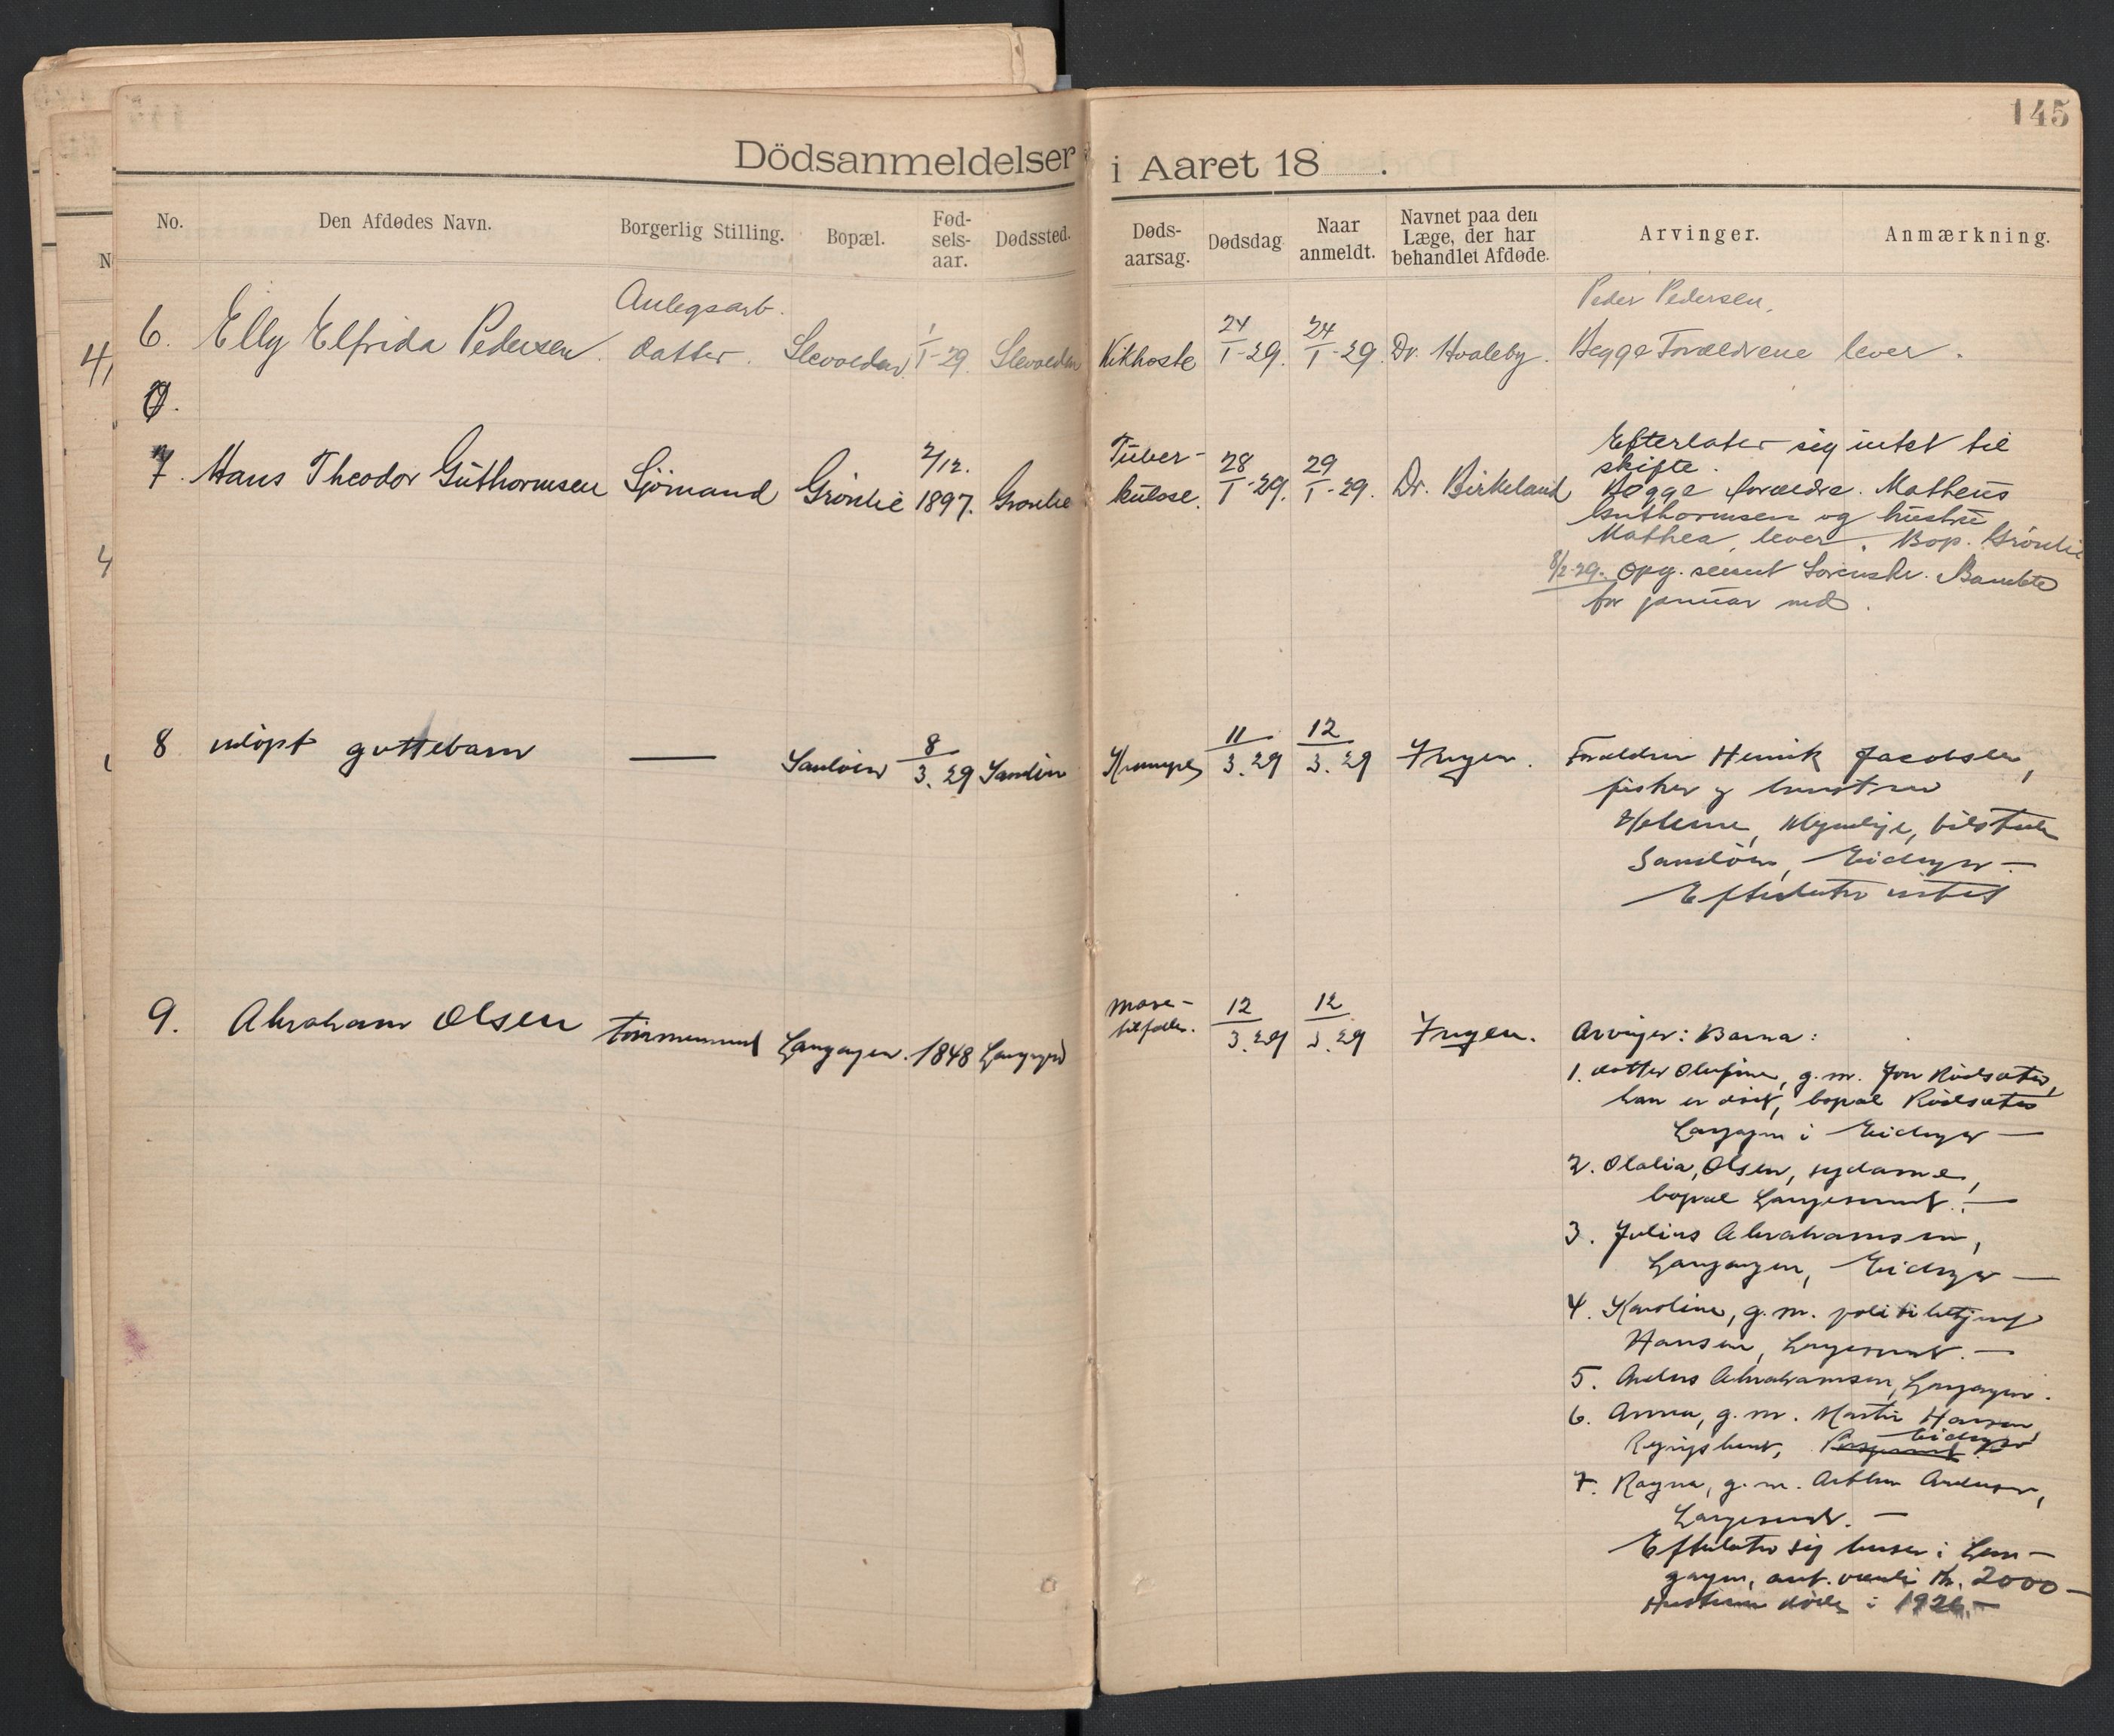 145
Dödsanmeldelser i Aaret 18 .
No. Den Afdødes Navn. Borgerlig Stilling. Bopæl. Fød-sels-aar. Dødssted. Døds-aarsag. Dødsdag Naar anmeldt. Navnet paa den Læge, der har behandlet Afdøde. Arvinger. Anmærkning.
Anlegsarb. Peder Pedersen,
6. Elly Elfrida Pedersen. datter. 1/1-29. Kikhoste 24/1-29. 24/1-29. Dr. Hvaleby. Begge Forældrene lever.
7. Hans Theodor Guthormsen Sjömand Grönlie 2/12. 1897. Gronlie Tuber-kulose. 28/1-29. 29/1-29. Dr. Birkeland Efterlater sig intet til
skifte.
Begge forældre. Matheus
Guthormsen og hustru
Mathea, lever. Bop. Grönlie
8/2-29. Opg. sendt Sorenskr. Bamble
for januar md.
8 udöpt guttebarn — Sandöen 8/3.29 Sandöen Krampe 11/3.29 12/3.29 Ingen. Forældrer Henrik Jacobsen,
fisker og hustru
Helene,
Sandöen, Eidanger —
Efterlater intet
9. Abraham Olsen tømmermand Langangen. 1848 Langangen mave-tilfælde. 12/3.29 12/3.29 Ingen. Arvinger: Barna:
1. datter Olufine, g.m. Jon Rödsæter,
han er död, bopæl Rödsæter
Langangen i Eidanger —
2. Olalia Olsen, sydame,
bopæl Langesund. —
3. Julius Abrahamsen,
Langangen, Eidanger —
4. Karoline, g.m. politibetjent
Hansen, Langesund. —
5. Anders Abrahamsen, Langangen.
6. Anna, g.m. Martin Hansen,
Eidanger
7. Ragna, g.m. Arthur Andersen,
Langesund. —
Efterlater sig huser i Lan-
gangen, ant. værdi kr. 2000 —
Hustruen döde i 1926. —